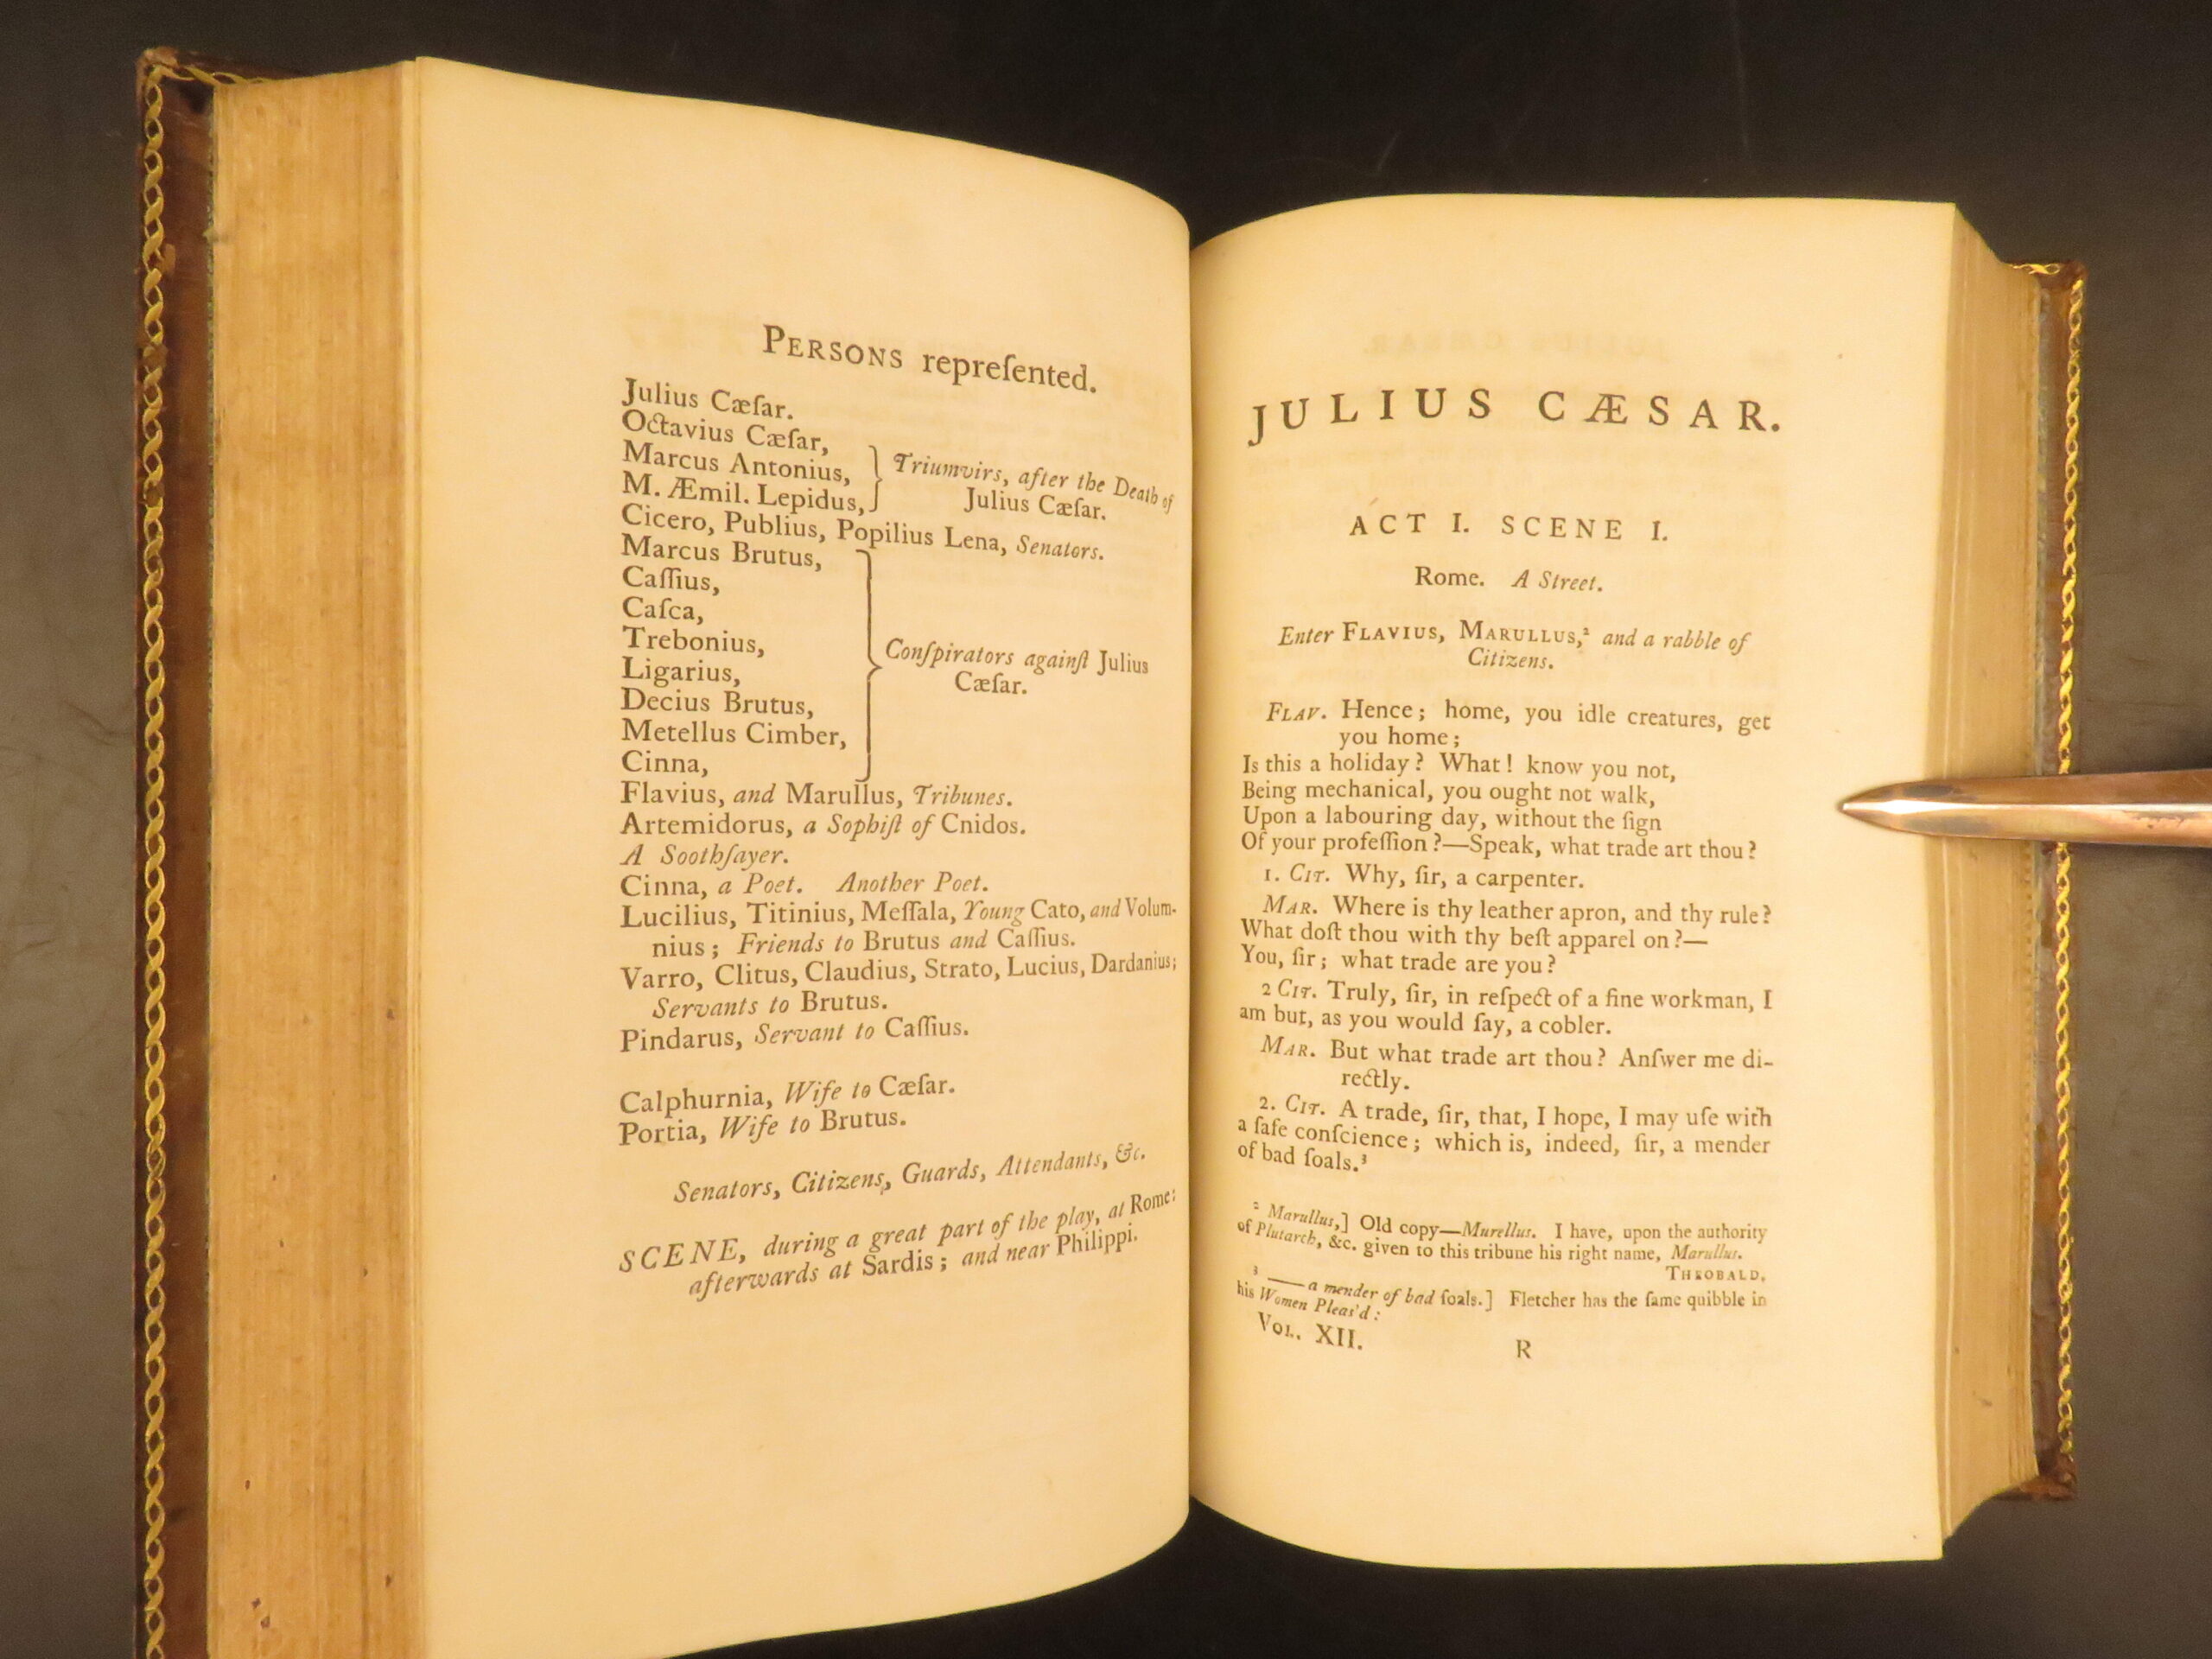 PERSONS repreſented.
Julius Cæſar.
Octavius Cæſar,
Marcus Antonius,
M. Æmil. Lepidus,
Triumvirs, after the Death of
Julius Cæſar.
Cicero, Publius, Popilius Lena, Senators.
Marcus Brutus,
Caſſius,
Caſca,
Trebonius,
Ligarius,
Decius Brutus,
Metellus Cimber,
Cinna,
Conſpirators againſt Julius
Cæſar.
Flavius, and Marullus, Tribunes.
Artemidorus, a Sophiſt of Cnidos.
A Soothſayer.
Cinna, a Poet. Another Poet.
Lucilius, Titinius, Meſſala, Young Cato, and Volum-
nius; Friends to Brutus and Caſſius.
Varro, Clitus, Claudius, Strato, Lucius, Dardanius;
Servants to Brutus.
Pindarus, Servant to Caſſius.
Calphurnia, Wife to Cæſar.
Portia, Wife to Brutus.
Senators, Citizens, Guards, Attendants, &c.
SCENE, during a great part of the play, at Rome:
afterwards at Sardis; and near Philippi.
JULIUS CÆSAR.
ACT I. SCENE I.
Rome. A Street.
Enter FLAVIUS, MARULLUS,² and a rabble of
Citizens.
FLAV. Hence; home, you idle creatures, get
you home;
Is this a holiday? What! know you not,
Being mechanical, you ought not walk,
Upon a labouring day, without the ſign
Of your profeſſion?—Speak, what trade art thou?
1. CIT. Why, ſir, a carpenter.
MAR. Where is thy leather apron, and thy rule?
What doſt thou with thy beſt apparel on?—
You, ſir; what trade are you?
2 CIT. Truly, ſir, in reſpect of a fine workman, I
am but, as you would ſay, a cobler.
MAR. But what trade art thou? Anſwer me di-
rectly.
2. CIT. A trade, ſir, that, I hope, I may uſe with
a ſafe conſcience; which is, indeed, ſir, a mender
of bad ſoals.³
² Marullus,] Old copy—Murellus. I have, upon the authority
of Plutarch, &c. given to this tribune his right name, Marullus.
THEOBALD.
³ —— a mender of bad ſoals.] Fletcher has the ſame quibble in
his Women Pleas'd:
VOL. XII. R